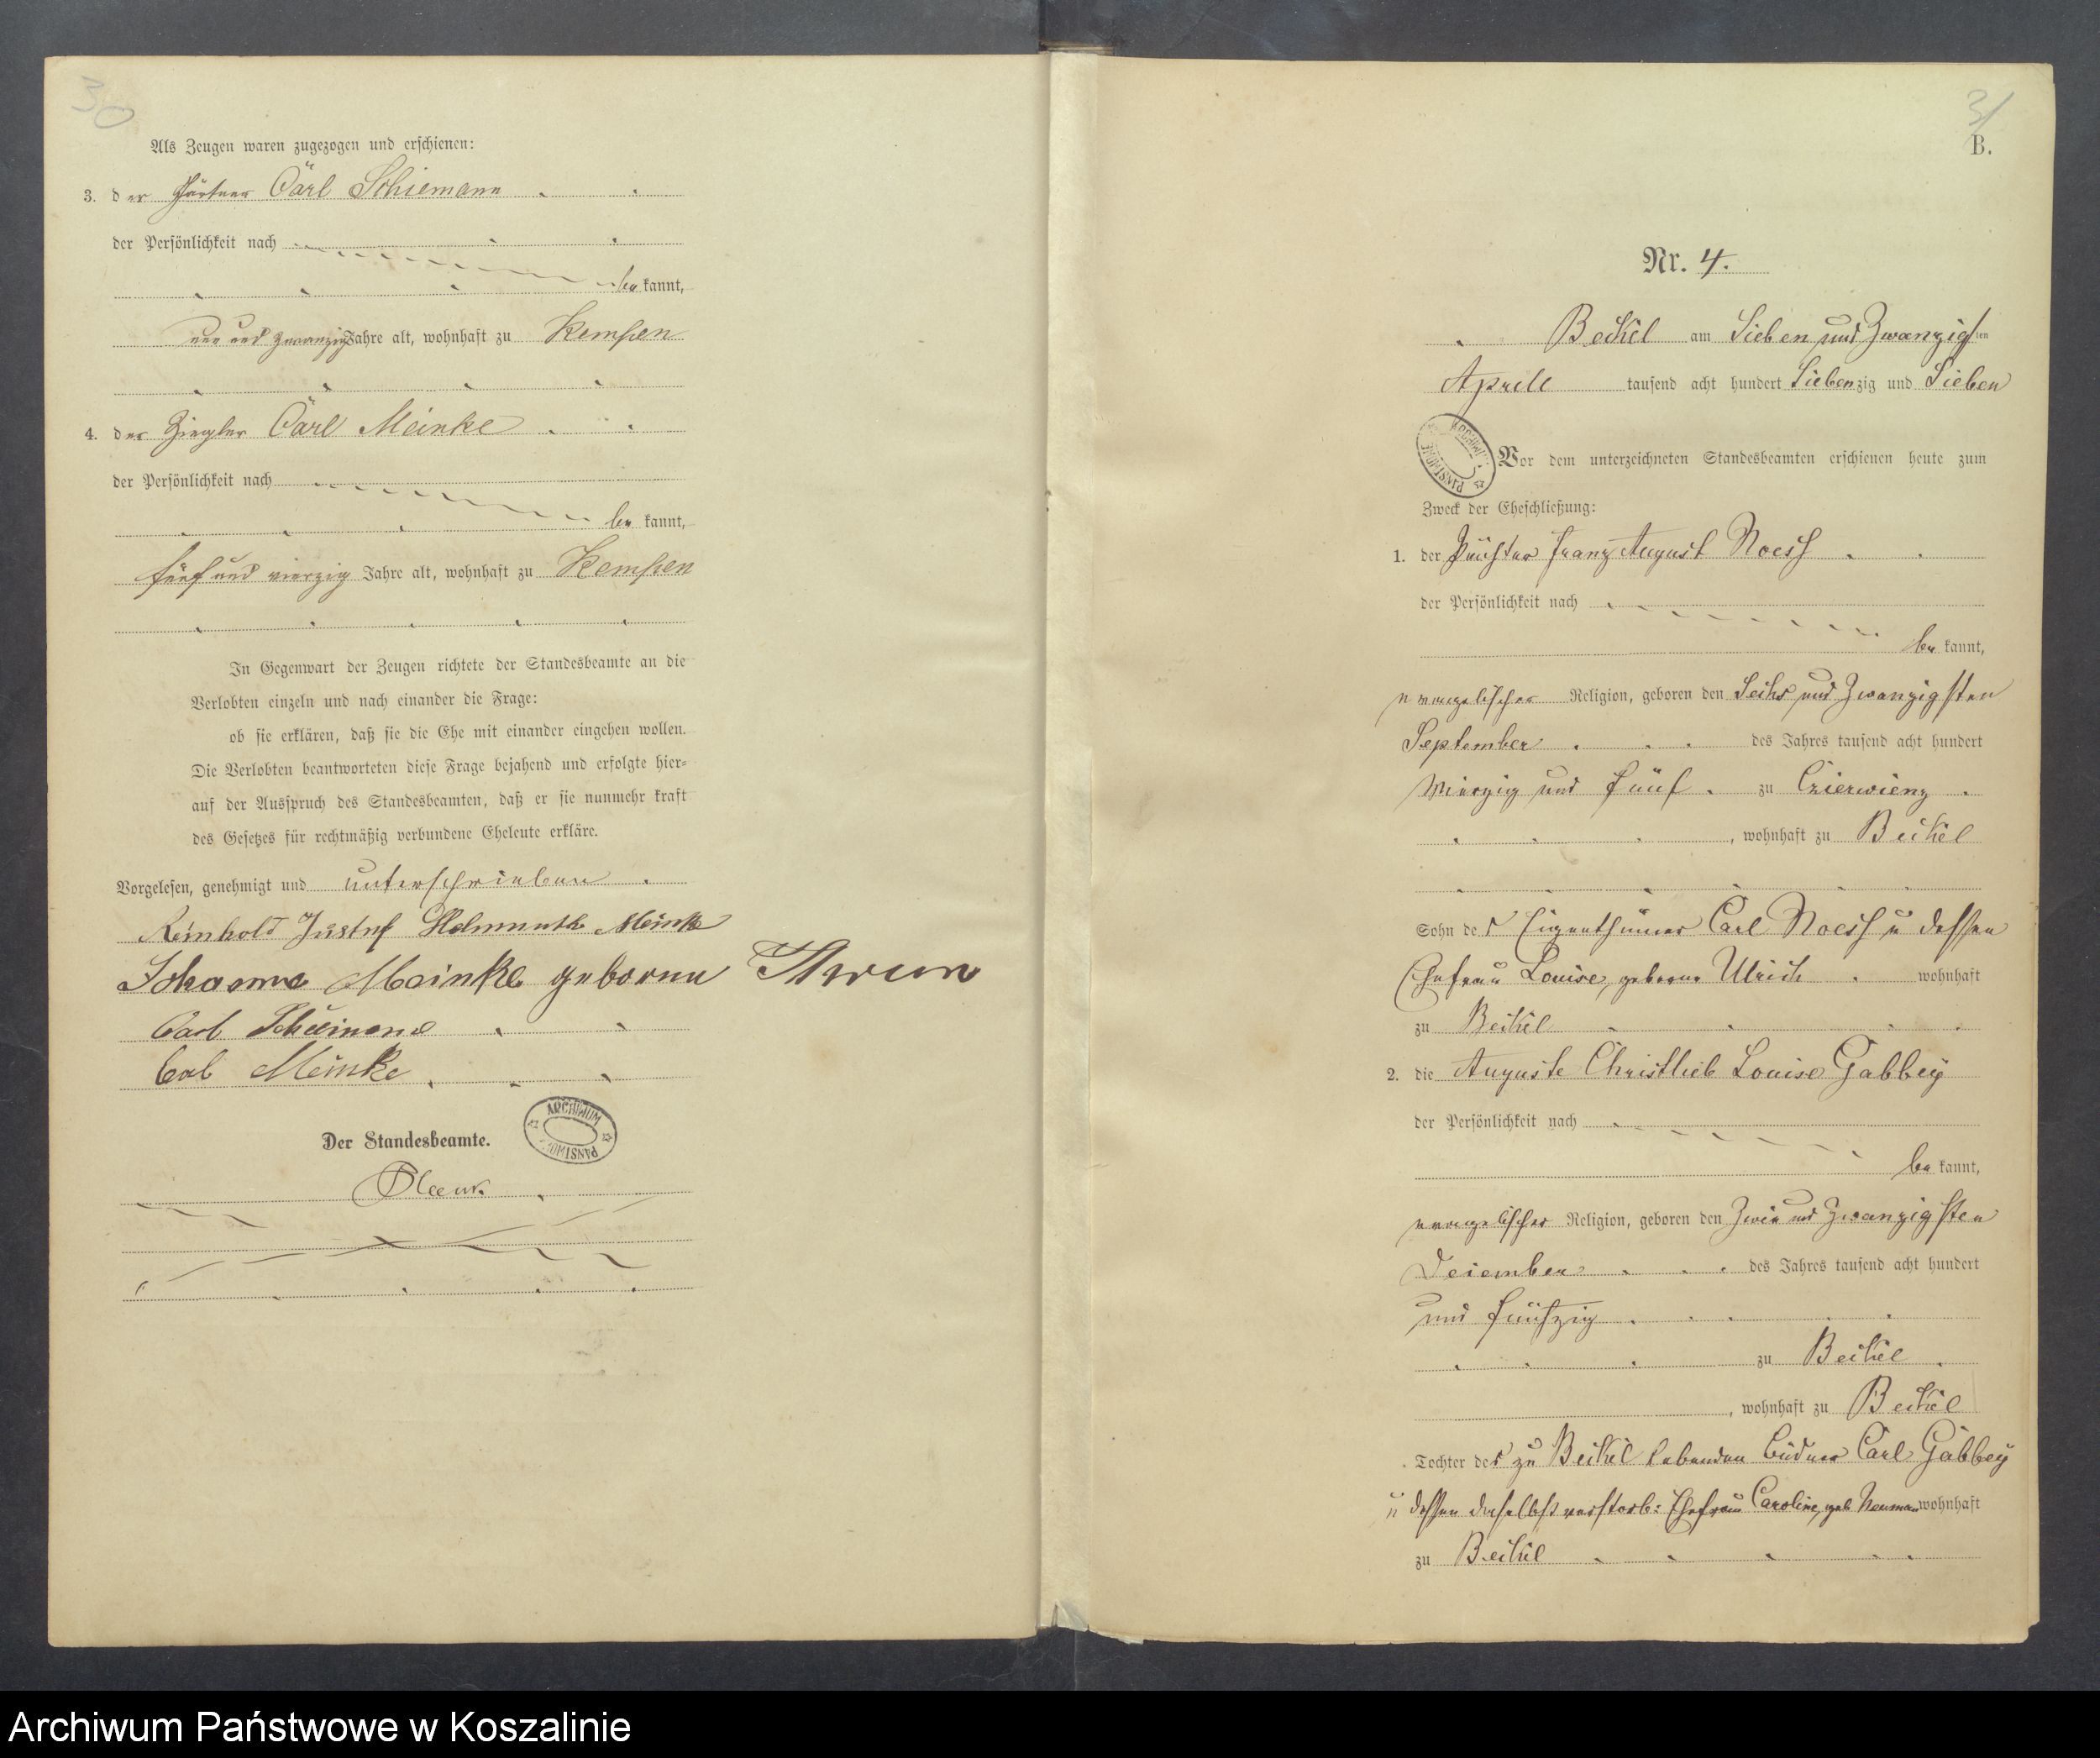 30
Als Zeugen waren zugezogen und erschienen:
3. der Gärtner Carl Schiemann
der Persönlichkeit nach
be kannt,
und zwanzig Jahre alt, wohnhaft zu Kempen
4. der Ziegler Carl Meinke
der Persönlichkeit nach
be kannt,
fünf und vierzig Jahre alt, wohnhaft zu Kempen
In Gegenwart der Zeugen richtete der Standesbeamte an die
Verlobten einzeln und nach einander die Frage:
ob sie erklären, daß sie die Ehe mit einander eingehen wollen.
Die Verlobten beantworteten diese Frage bejahend und erfolgte hier-
auf der Ausspruch des Standesbeamten, daß er sie nunmehr kraft
des Gesetzes für rechtmäßig verbundene Eheleute erkläre.
Vorgelesen, genehmigt und unterschrieben
Reinhold Gustaf Helmuth Meinke
Meinke geborne
Carl
Carl Meinke
Der Standesbeamte.
ARCHIWUM PAŃSTWOWE
31
B.
Nr. 4.
Beckel am Sieben und Zwanzigsten
Aprill tausend acht hundert Siebenzig und Sieben
ARCHIWUM PAŃSTWOWE
Vor dem unterzeichneten Standesbeamten erschienen heute zum
Zweck der Eheschließung:
1. der Franz August Noess
der Persönlichkeit nach
be kannt,
evangelischer Religion, geboren den Sechs und Zwanzigsten
September des Jahres tausend acht hundert
Vierzig und fünf zu Czierwienz
, wohnhaft zu Beckel
Sohn des Eigenthümer Carl Noess u dessen
Ehefrau Louise, geborne Ulrich wohnhaft
zu Beckel
2. die Auguste Christlieb Louise Gabbey
der Persönlichkeit nach
be kannt,
evangelischer Religion, geboren den Zwei und Zwanzigsten
Decembers des Jahres tausend acht hundert
und fünfzig
zu Beckel
, wohnhaft zu Beckel
Tochter des zu Beckel lebenden Büdner Carl Gabbey
u dessen daselbst verstorb: Ehefrau Caroline, geb Neuman wohnhaft
zu Beckel
Archiwum Państwowe w Koszalinie